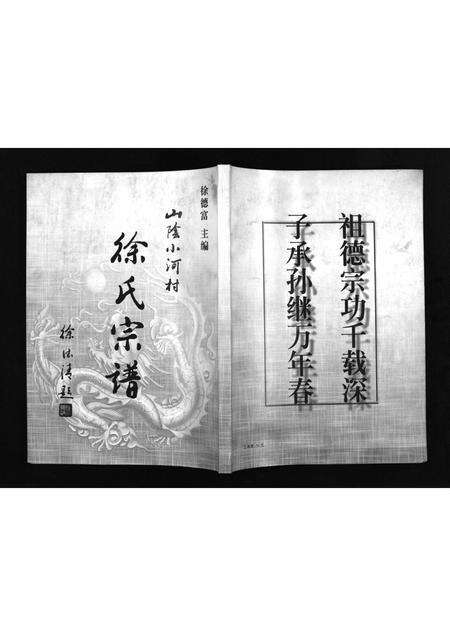 徐德富 主编
山陰小河村
徐氏宗谱
祖德宗功千载深
子承孙继万年春